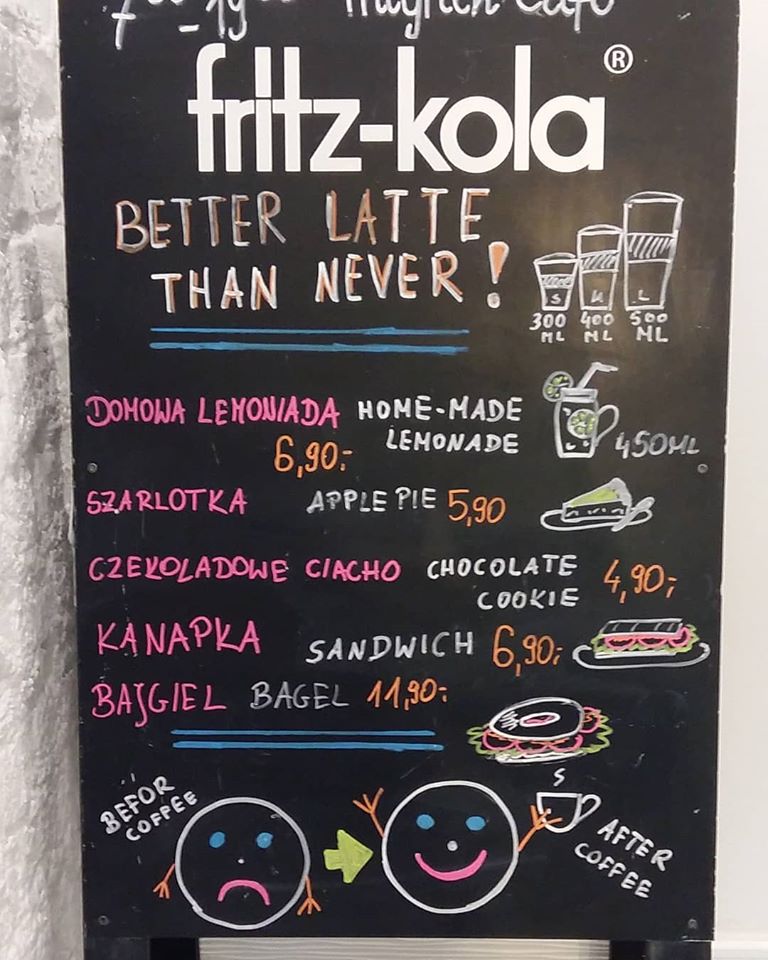 7⁰⁰-19⁰⁰
fritz-kola®
BETTER LATTE
THAN NEVER!
S M L
300 ML 400 ML 500 ML
DOMOWA LEMONIADA HOME-MADE
LEMONADE
6,90:-
450ML
SZARLOTKA APPLE PIE 5,90
CZEKOLADOWE CIACHO CHOCOLATE
COOKIE
4,90,-
KANAPKA SANDWICH 6,90:-
BAJGIEL BAGEL 11,90:-
BEFOR
COFFEE
AFTER
COFFEE